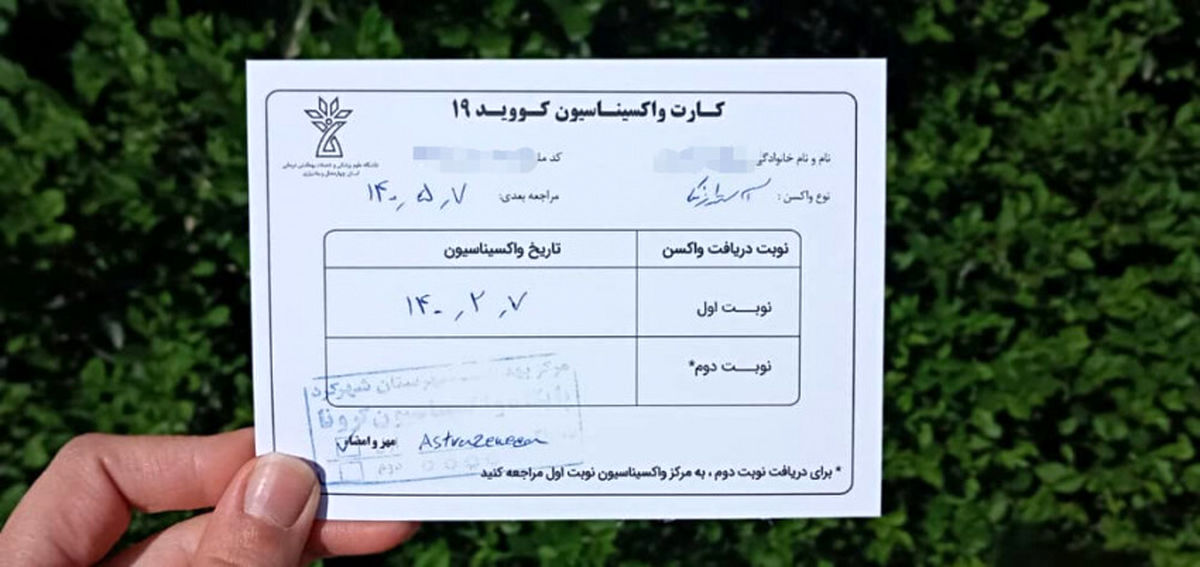 کارت واکسیناسیون کووید ۱۹
دانشگاه علوم پزشکی و خدمات بهداشتی درمانی
استان چهارمحال و بختیاری
نام و نام خانوادگی کد مل
نوع واکسن : آسترازنکا مراجعه بعدی: ۱۴۰۰,۵,۷
نوبت دریافت واکسن تاریخ واکسیناسیون
نوبـــت اول ۱۴۰۰,۲,۷
نوبـــت دوم*
مرکز شهرستان شهرکرد
کرونا
مهر و امضاء AstraZeneca
دوم
* برای دریافت نوبت دوم ، به مرکز واکسیناسیون نوبت اول مراجعه کنید